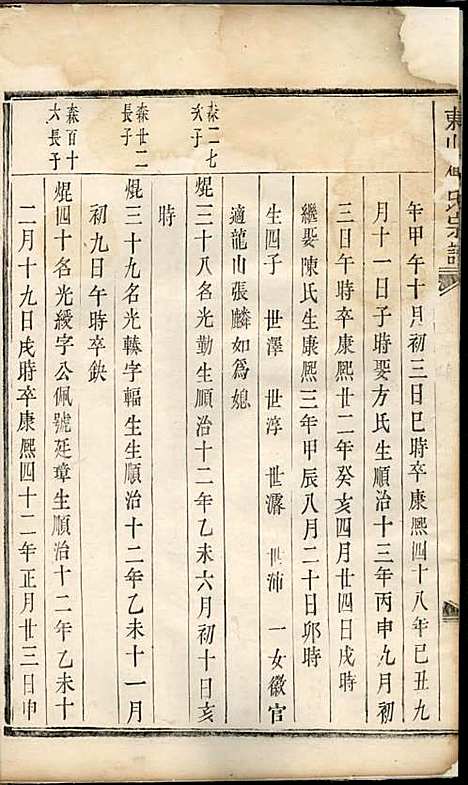 年甲午十月初三日巳時卒康熙四十八年己丑九
月十一日子時娶方氏生順治十三年丙申九月初
三日午時卒康熙廿二年癸亥四月廿四日戌時
繼娶陳氏生康熙三年甲辰八月二十日卯時
生四子 世澤 世淳 世潞 世沛 一女徽官
適龍山張麟如為媳
森二七
次子
焜三十八名光勤生順治十二年乙未六月初十日亥
時
森廿二
長子
焜三十九名光轃字輻生生順治十二年乙未十一月
初九日午時卒缺
森百十
六長子
焜四十名光綬字公佩號廷章生順治十二年乙未十
二月十九日戌時卒康熙四十二年正月廿三日申
氏宗譜